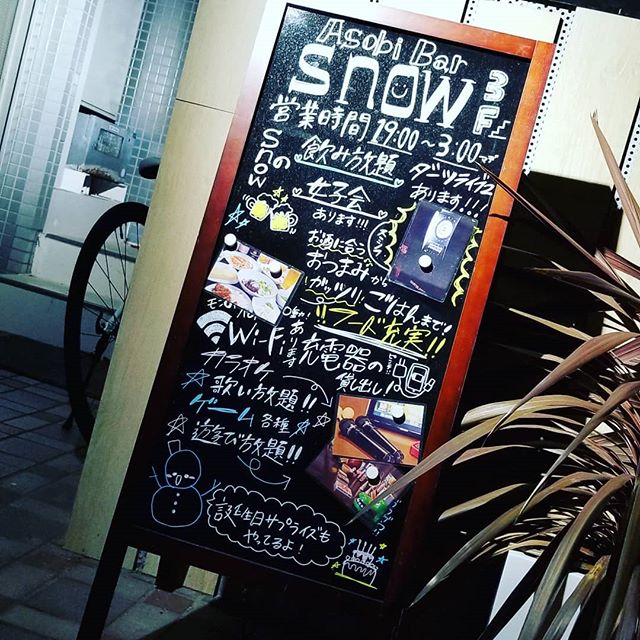 Asobi Bar
snow
3F
営業時間 19:00～3:00まで
snowの
飲み放題
女子会
あります!!!
ダーツライブ2
あります!!!
お酒に合う
おつまみから
ガッツリごはんまで!
フード充実!!
Wi-Fi
あります
充電器の
貸し出し!
カラオケ
歌い放題!!
ゲーム各種
遊び放題!!
誕生日サプライズも
やってるよ!